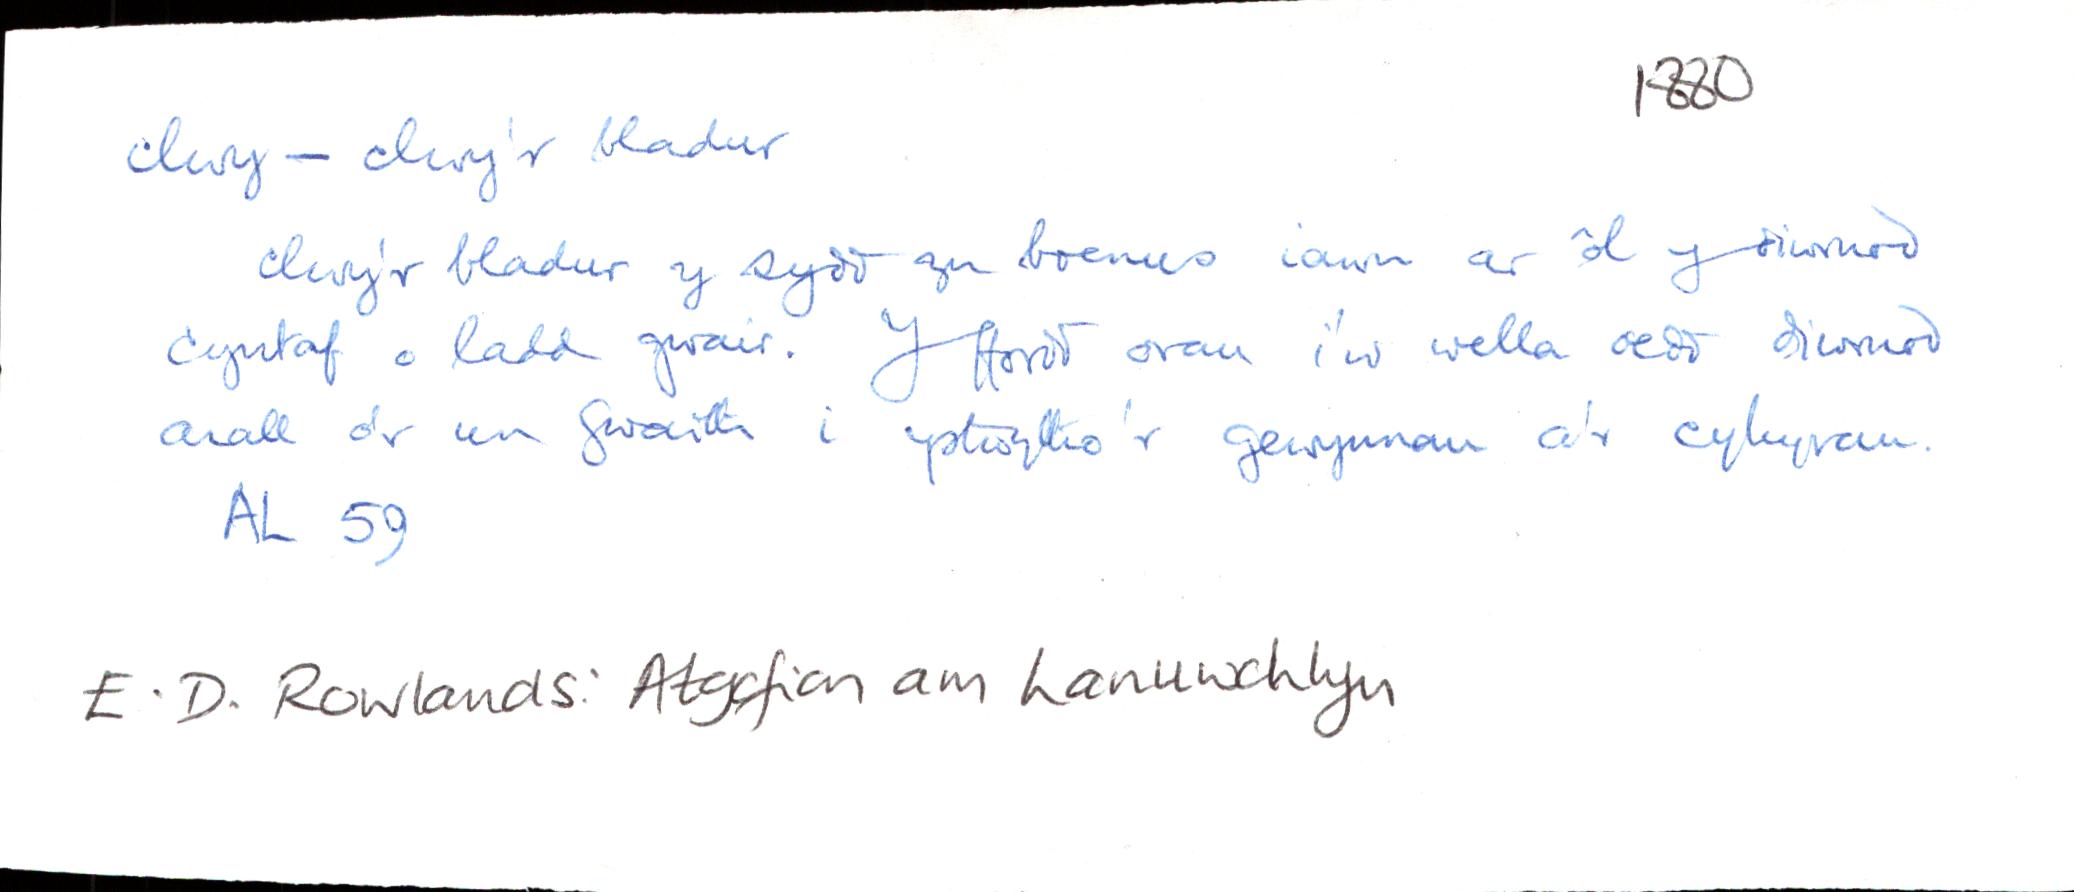 1880
clwy — clwy'r bladur
clwy'r bladur y syδδ yn boenus iawn ar ôl y diwrnoδ
cyntaf o ladd gwair. Y fforδδ orau i'w wella oeδδ diwrnoδ
arall o'r un gwaith i ystwytho'r gewynnau a'r cyhyrau.
AL 59
E. D. Rowlands: Atgofion am Lanuwchllyn